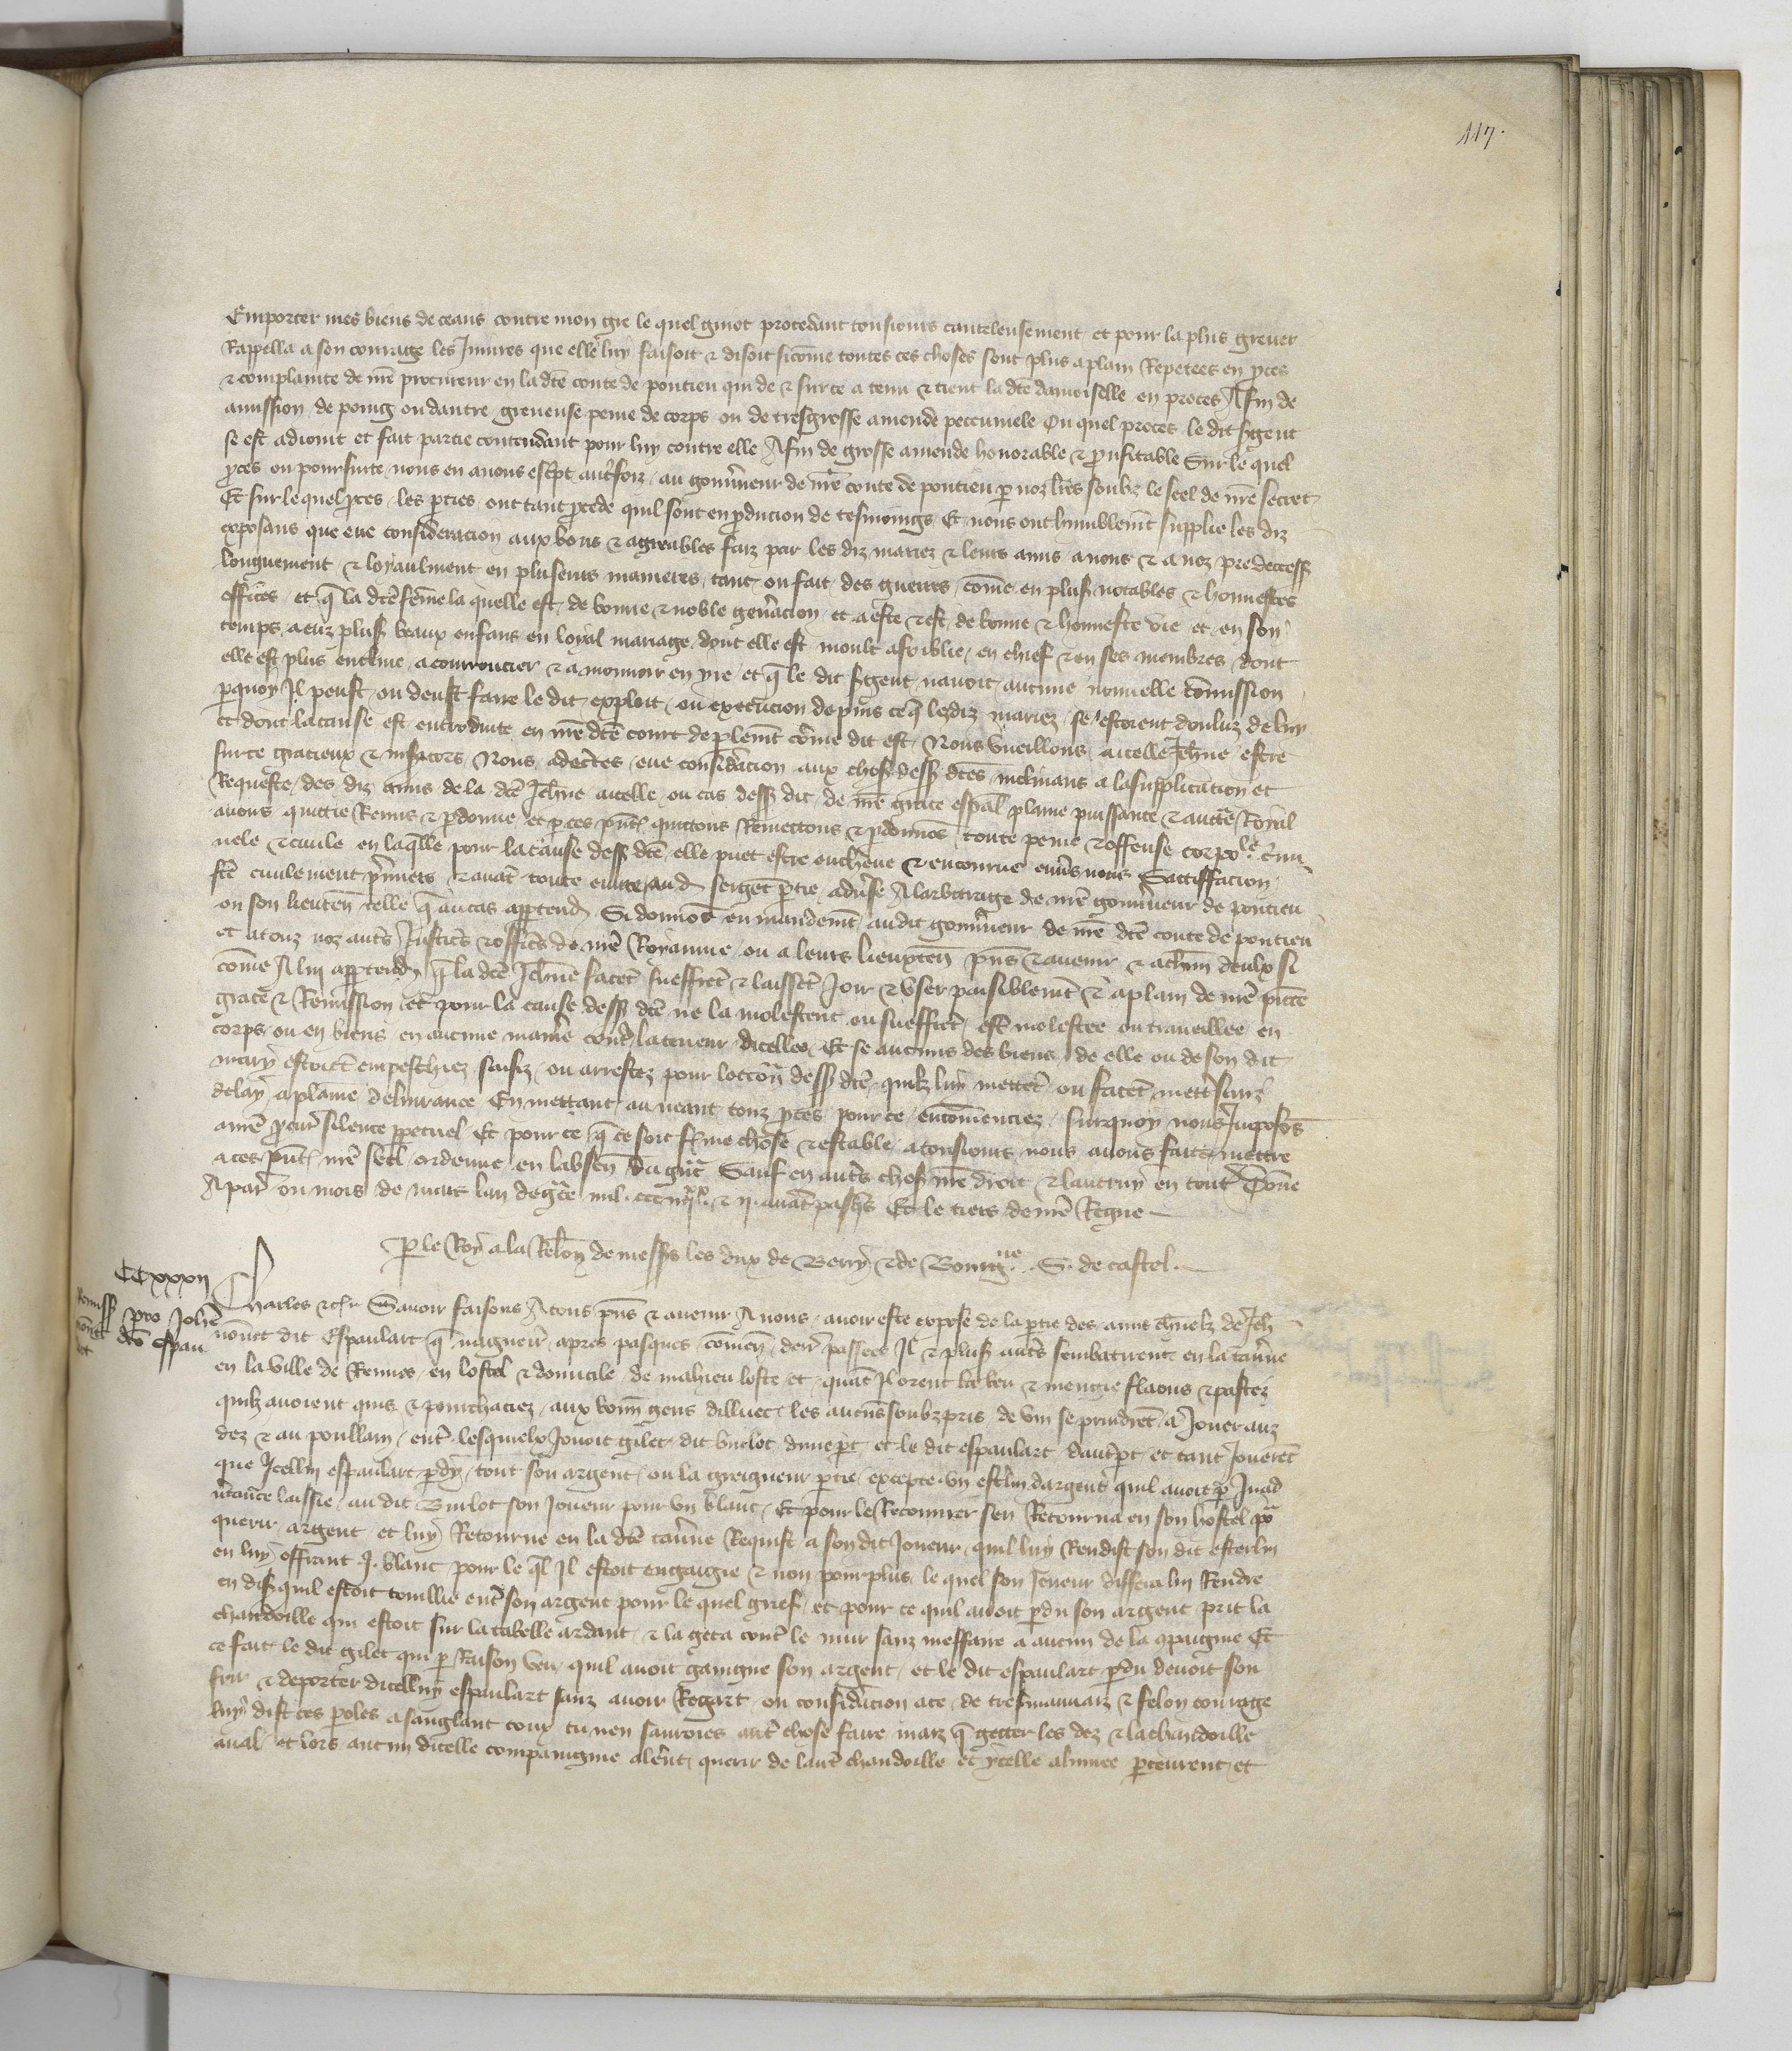 117.
Emporter mes biens de ceans contre mon gre le quel guiot procedant tousiours cauteleusement et pour la plus grever
Rappella a son courage les Iniures que elle luy faisoit & disoit sicome toutes ces choses sont plus aplain Repetees en pces
& complainte de nre procureur en la dte conte de pontieu qui de & sur ce a tenu & tient la dte damoiselle en proces Afin de
amission de poing ou dautre greveuse peine de corps ou de tresgrosse amende peccuniele Ou quel proces le dit sgent
se est adioint et fait partie contendant pour luy contre elle Afin de grosse amende honorable & proufitable Sur le quel
pces ou poursuite nous en avons escpt autrefoiz au gouvneur de nre conte de pontieu p noz lres soubz le seel de nre secret
Et sur le quel pces les pties ont tant pcede quil sont en pducion de tesmoings Et nous ont humblemt supplie les diz
exposans que eue consideracion aux bons & agreables faiz par les diz mariez & leurs amis a nous & a noz predecess
longuement & loyaulment en pluseurs manieres tant ou fait des guerres come en plus notables & honnestes
offices et q la dte feme la quelle est de bonne & noble gen̄acion et a este & est de bonne & honneste vie et en son
temps a euz plus beaux enfans en loyal mariage dont elle est moult afoiblie en chief & en ses membres dont
elle est plus encline a courroucier & a mouvoir en yre et q le dit sgent navoit aucune nouvelle comission
pquoy Il peust ou deust faire le dit exploit ou execucion depuis ce q lesdiz mariez se estoient douluz de luy
et dont la cause est introduite en nre dte court de plemt come dit est Nous vueillons a icelle Jehne estre
sur ce gracieux & misacors Nous adectes eue consideracion aux chos dess dtes inclinans a la supplicacion et
Requeste des diz amis de la dte Jehne a icelle ou cas dess dit de nre grace espal plaine puissance & auctte Royal
avons quittie Remis & pdonne et p ces pnt quittons Remettons & pdonnos toute peine & offense corpole crimi
nele & civile en laqlle pour la cause dess dte elle puet estre encheue & encourue envs nous Satisffacion
fte civilement pmiers & avat toute euvre aud sergent ptie advse A larbitrage de nre gouvneur de pontieu
ou son lieuten telle q au cas apptend Si donnos en mandemt audit gouvneur de nre dte conte de pontieu
et a touz noz auts Justices & offices de nre Royaume ou a leurs lieuxten pns & avenir & a chun deulx si
come A lui apptendra q la dte Jehne facet sueffret & laisset Joir & user paisiblemt & aplain de nre pnte
grace & Remission et pour la cause dess dte ne la molestent ou sueffret est molestee ou travellee en
corps ou en biens en aucune maniere cont la teneur dicelles Et se aucuns des biens de elle ou de son dit
mary estoiet empeschiez saisiz ou arrestez pour loccon dess dte quilz luy mettet ou facet mett sanz
delay a plaine delivrance En mettant au neant touz pces pour ce encomenciez Surquoy nous Imposos
a nre pcur silence ppetuel Et pour ce q ce soit ferme chose & estable a tousiours nous avons fait mettre
a ces pnt nre seel ordenne en labsen du gnt Sauf en auts chos nre droit & lautruy en tout Donne
A par ou mois de mars lan de gce mil ccc iiiixx & ii avat pasqs Et le tiers de nre Regne
P le Roy a la Relon de mess les dux de Berry & de Bourgne S. de castel.
CCxxxii
Remiss pro Johe
nonet
dco Espau
let
Charles &c Savoir faisons A tous pns & avenir A nous avoir este expose de la ptie des amis charnelz de Jeh
nonet dit Espaulart q nagueir apres pasques comen derr passees Il & plus auts sembatirent en la taverne
en la ville de Rennes en lostel & domicile de mahieu loste et quat Il orent la beu & mengie flaons & pastez
quilz avoient quis & pourchaciez aux bonn gens dilluec les aucuns soubzpris de vin se prindrent a Jouer auz
dez & au poullain entre lesquielx Jouoit gilet dit burlot dune pt et le dit espaulart dautre pt et tant Jouerent
que Icelluy espaulart pdy tout son argent ou la greigneur ptie excepte un estlin dargent quil avoit p Inad
vtance laissie au dit Burlot son Joueur pour un blanc Et pour le Recouvrer sen Retourna en son hostel pr
querir argent et luy Retourne en la dte taverne Requist a son dit Joueur quil luy Rendist son dit esterlin
en luy offrant .I. blanc pour le ql Il estoit engaigie & non pour plus le quel son Joueur differa lui Rendre
en dis quil estoit touillie ent son argent pour le quel grief et pour ce quil avoit pdu son argent prit la
chandoille qui estoit sur la tabelle ardant & la geta cont le mur sanz meffaire a aucun de la cpaignie Et
ce fait le dit gilet qui p Raison veu quil avoit gaigne son argent et le dit espaulart pdu devoit son
frir & deporter dicelluy espaulart sanz avoir Regart ou consideracion a ce de tresmauvaiz & felon courage
luy dist ces poles a sanglant coux tu nen sauroies aut chose faire maiz q getter les dez & la chandoille
aval et lors aucun dicelle compaignie alerent querir de laut chandoille et ycelle alumee pceurent et